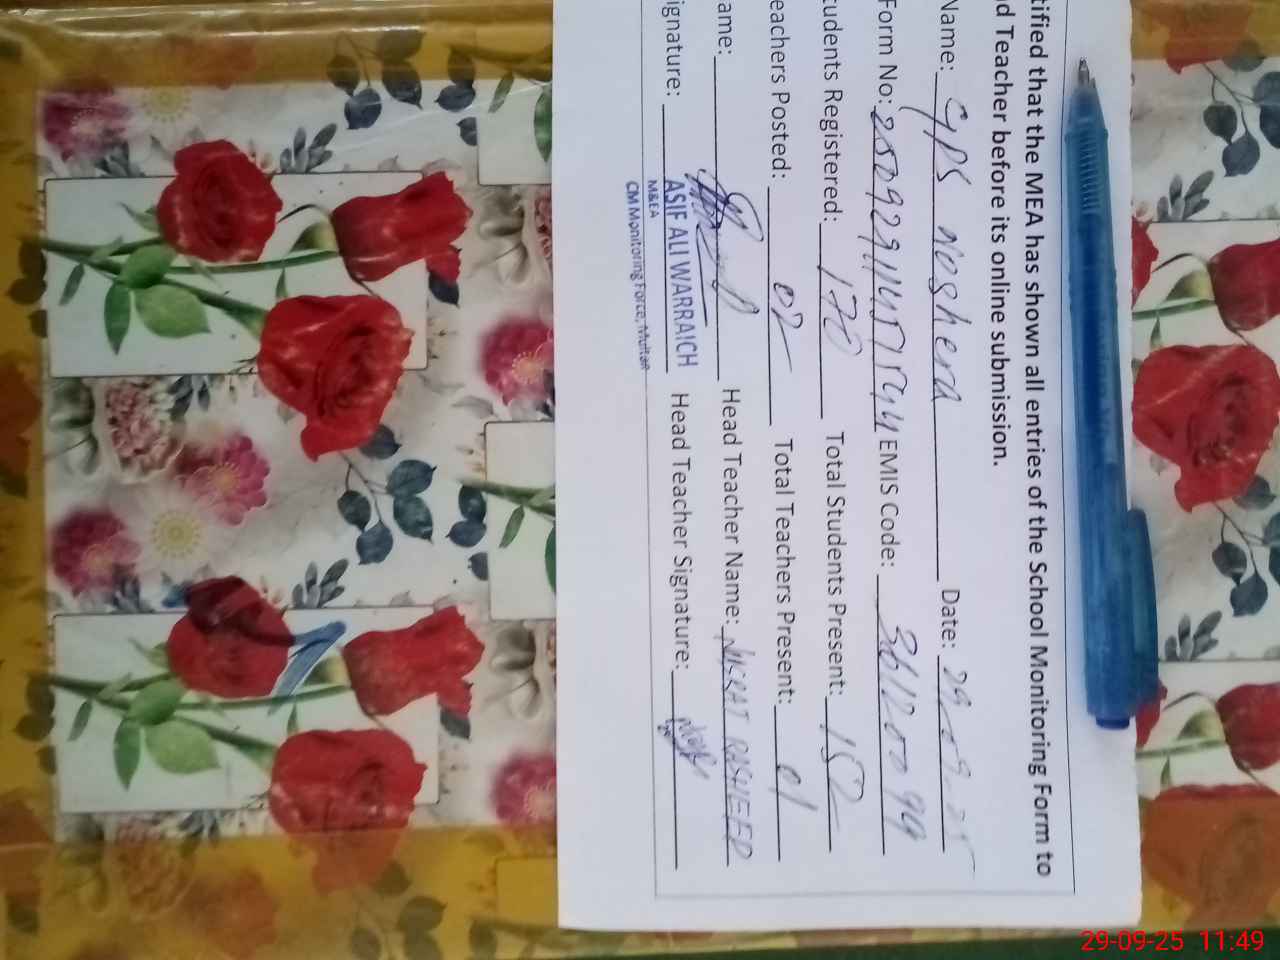 tified that the MEA has shown all entries of the School Monitoring Form to
d Teacher before its online submission.
Name: GPS Noshera Date: 29-09-25
Form No: EMIS Code: 36120099
tudents Registered: 170 Total Students Present: 152
eachers Posted: 02 Total Teachers Present: 01
ame: Head Teacher Name: NUSRAT RASHEED
ignature: Head Teacher Signature:
ASIF ALI WARRAICH
M&EA
CM Monitoring Force, Multan
29-09-25 11:49